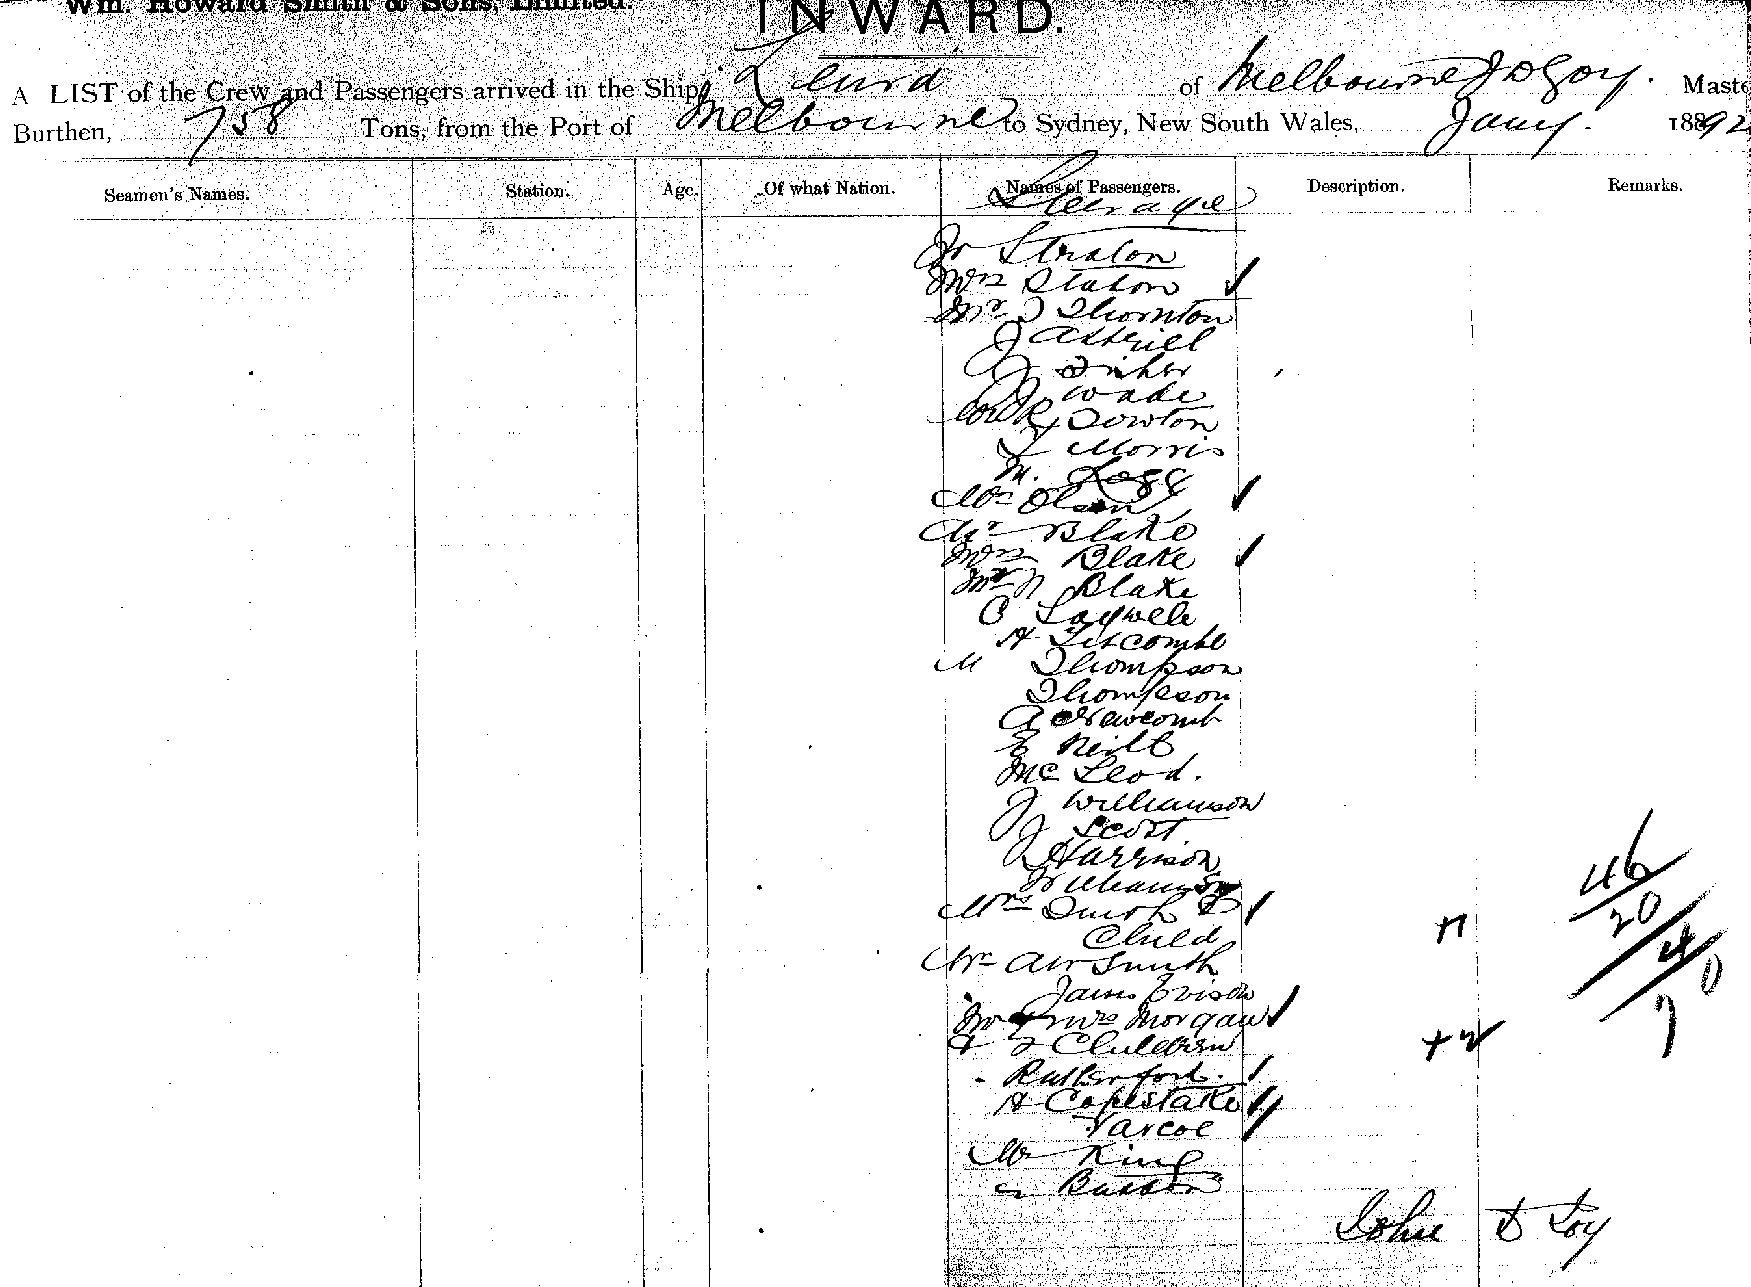 Wm. Howard Smith & Sons, Limited.
INWARD.
A LIST of the Crew and Passengers arrived in the Ship Leura of Melbourne J D Loy. Maste
Burthen, 758 Tons, from the Port of Melbourne to Sydney, New South Wales, Jany. 1892
Seamen's Names. Station. Age. Of what Nation. Names of Passengers. Description. Remarks.
Steerage
Mr Straton
Mrs Staton
Mr J Thornton
J
J Fisher
J Wade
Dowton
L Morris
M. Legg
Mrs Olsen
Mr Blake
Mrs Blake
Mr N Blake
C Laywell
H Titcombe
M Thompson
Thompson
A Newcomb
E Neill
McLeod.
J Williamson
J Scott
J Harrison
Williamson
Mrs Smith &
Child
Mr AW Smith
James Evison
Mr & Mrs Morgan
& 2 Children
Rutherford.
H Copestake
Varcoe
Mr King
46
20
4
70
John D Loy